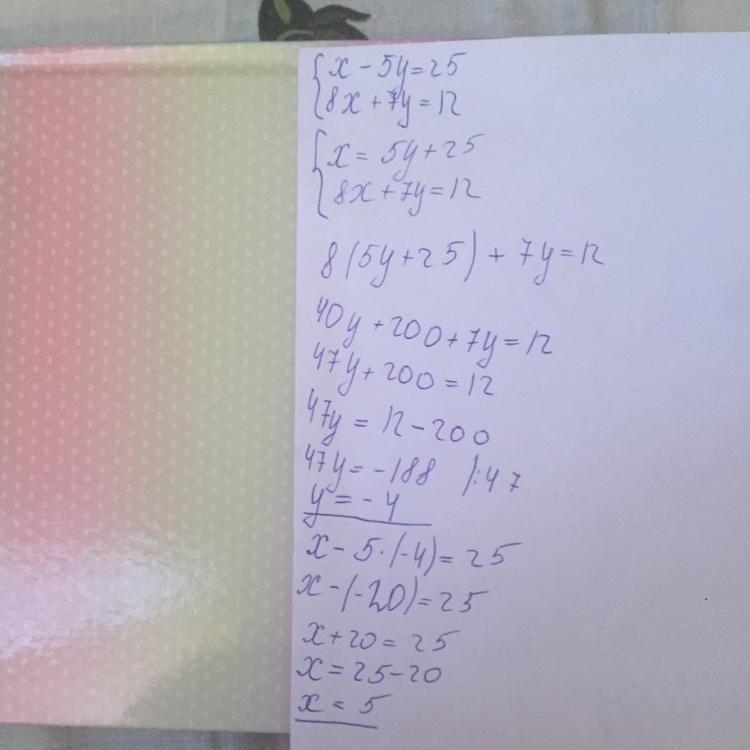 {x - 5y = 25
{8x + 7y = 12
{x = 5y + 25
{8x + 7y = 12
8(5y + 25) + 7y = 12
40y + 200 + 7y = 12
47y + 200 = 12
47y = 12 - 200
47y = -188 |:47
y = -4
x - 5·(-4) = 25
x - (-20) = 25
x + 20 = 25
x = 25 - 20
x = 5